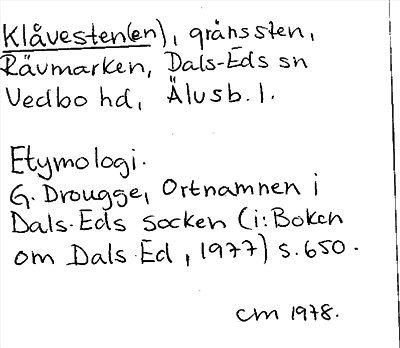 Klåvesten(en), gränssten,
Rävmarken, Dals-Eds sn
Vedbo hd, Älvsb. l.
Etymologi.
G. Drougge, Ortnamnen i
Dals-Eds socken (i: Boken
om Dals Ed, 1977) s. 650.
CM 1978.